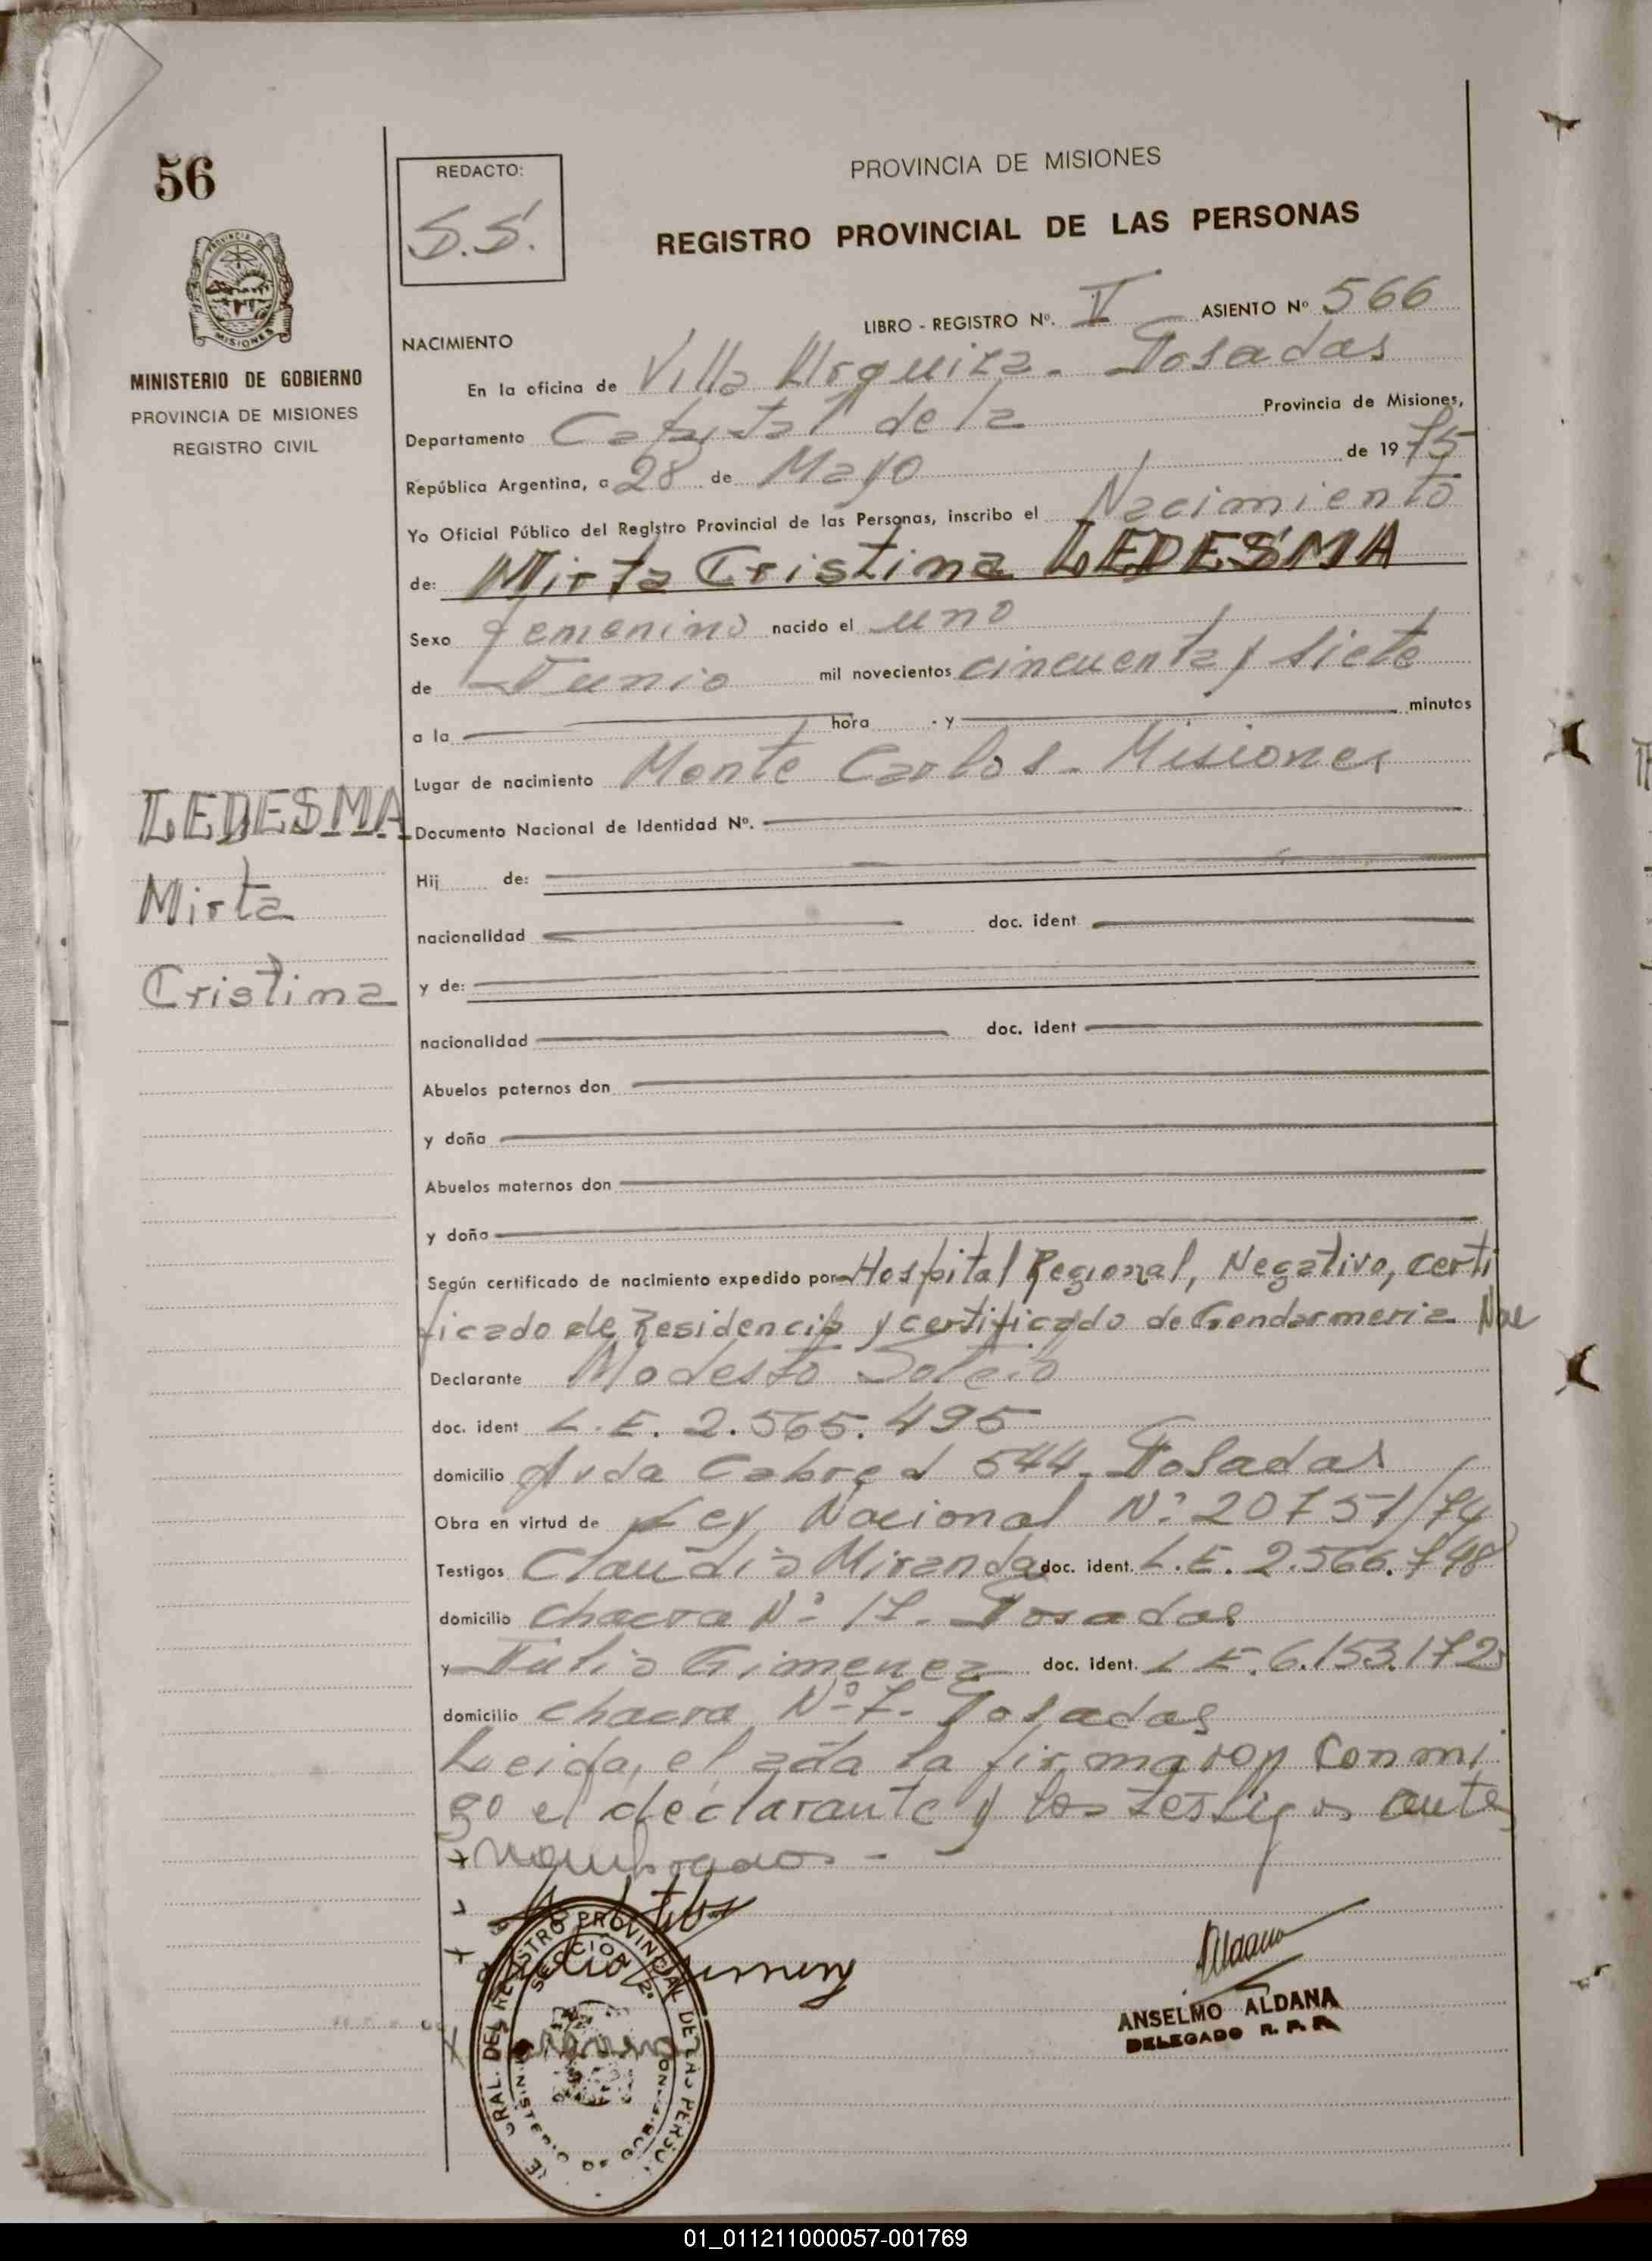 56
REDACTO:
S.S.
PROVINCIA DE MISIONES
REGISTRO PROVINCIAL DE LAS PERSONAS
PROVINCIA DE
MISIONES
MINISTERIO DE GOBIERNO
PROVINCIA DE MISIONES
REGISTRO CIVIL
LIBRO - REGISTRO Nº. V ASIENTO Nº 566
NACIMIENTO
En la oficina de Villa Urquiza - Posadas
Departamento Capital de la Provincia de Misiones,
República Argentina, a 28 de Mayo de 1975
Yo Oficial Público del Registro Provincial de las Personas, inscribo el Nacimiento
de: Mirta Cristina LEDESMA
Sexo femenino nacido el uno
de Junio mil novecientos cincuenta y siete
a la hora - y minutos
Lugar de nacimiento Monte Carlos - Misiones
LEDESMA
Mirta
Cristina
Documento Nacional de Identidad Nº.
Hij de:
nacionalidad doc. ident
y de:
nacionalidad doc. ident
Abuelos paternos don
y doña
Abuelos maternos don
y doña
Según certificado de nacimiento expedido por Hospital Regional, Negativo, certi
ficado de Residencia y certificado de Gendarmeria Nac
Declarante Modesto
doc. ident L.E. 2.565.495
domicilio Avda Cabred 544 - Posadas
Obra en virtud de Ley Nacional Nº 20751/74
Testigos Claudio Miranda doc. ident. L.E. 2.566.748
domicilio chacra Nº 17 - Posadas
y Julio Gimenez doc. ident. L.E. 6.153.172
domicilio chacra Nº 7 - Posadas
Leida el acta la firmaron conmi
go el declarante y los testigos antes
nombrados -
Julio Jimenez
ANSELMO ALDANA
DELEGADO R. P. P.
GRAL. DEL REGISTRO PROVINCIAL DE LAS PERSO
SECCION 2ª
MINISTERIO DE GOBIERNO
01_011211000057-001769